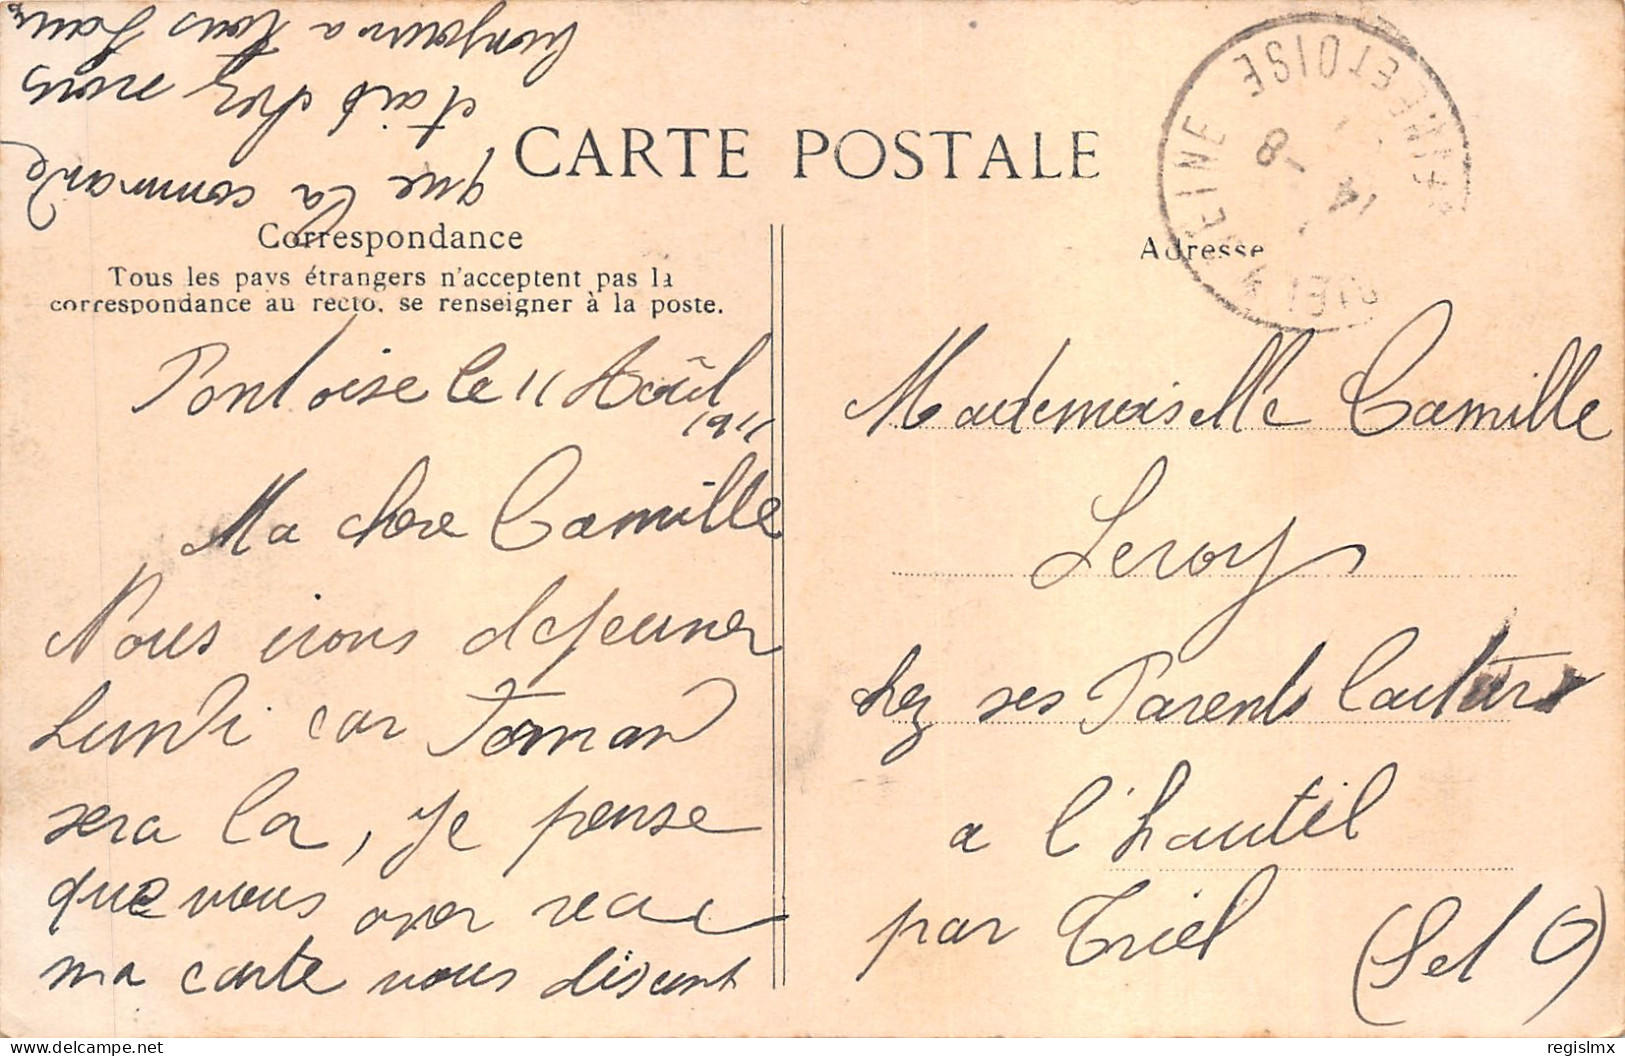 CARTE POSTALE
Correspondance
Tous les pays étrangers n'acceptent pas la
correspondance au recto, se renseigner à la poste.
Pontoise le 11 Août
1911
Ma chere Camille
Nous irons dejeuner
Lundi car
sera la, je pense
que vous aver recu
ma carte vous disant
que la commande
etait chez nous
bonjour a tous
Adresse
Mademoiselle Camille
Leroy
chez ses Parents
a l'hautil
par Triel (S et O)
SEINE
ET OISE
14 - 8
regislmx
delcampe.net